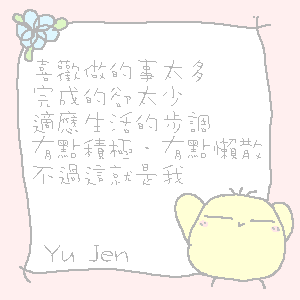 喜歡做的事太多
完成的卻太少
適應生活的步調
有點積極、有點懶散
不過這就是我
Yu Jen